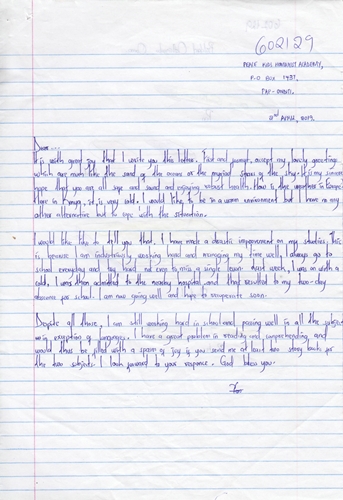 602129
PEAK KIDS HUMANIST ACADEMY,
P.O BOX 1437,
2nd APRIL, 2013.
Dear ....
It is with great joy that I write you this letter. First and foremost, accept my lovely greetings
which are more like the sand of the ocean or the myriad stars of the sky. It is my sincere
hope that you are all safe and sound and enjoying robust health. How is the weather in Europe
Here in Kenya, it is very cold. I would like to be in a warm environment but I have no
other alternative but to cope with the situation.
I would like to tell you that, I have made a drastic improvement on my studies. This
is because I am industriously working hard and managing my time well. I always go to
school everyday and try hard not even to miss a single lesson. Last week, I was ill with a
cold. I was then admitted to the nearby hospital and that resulted to my two-day
absence for school. I am now going well and hope to recuperate soon.
Despite all these, I am still working hard in school and passing well in all the subjects
with exception of languages. I have a great problem in reading and comprehending and
would thus be filled with a spasm of joy if you send me at least two story books for
the two subjects. I look forward to your response. God bless you.